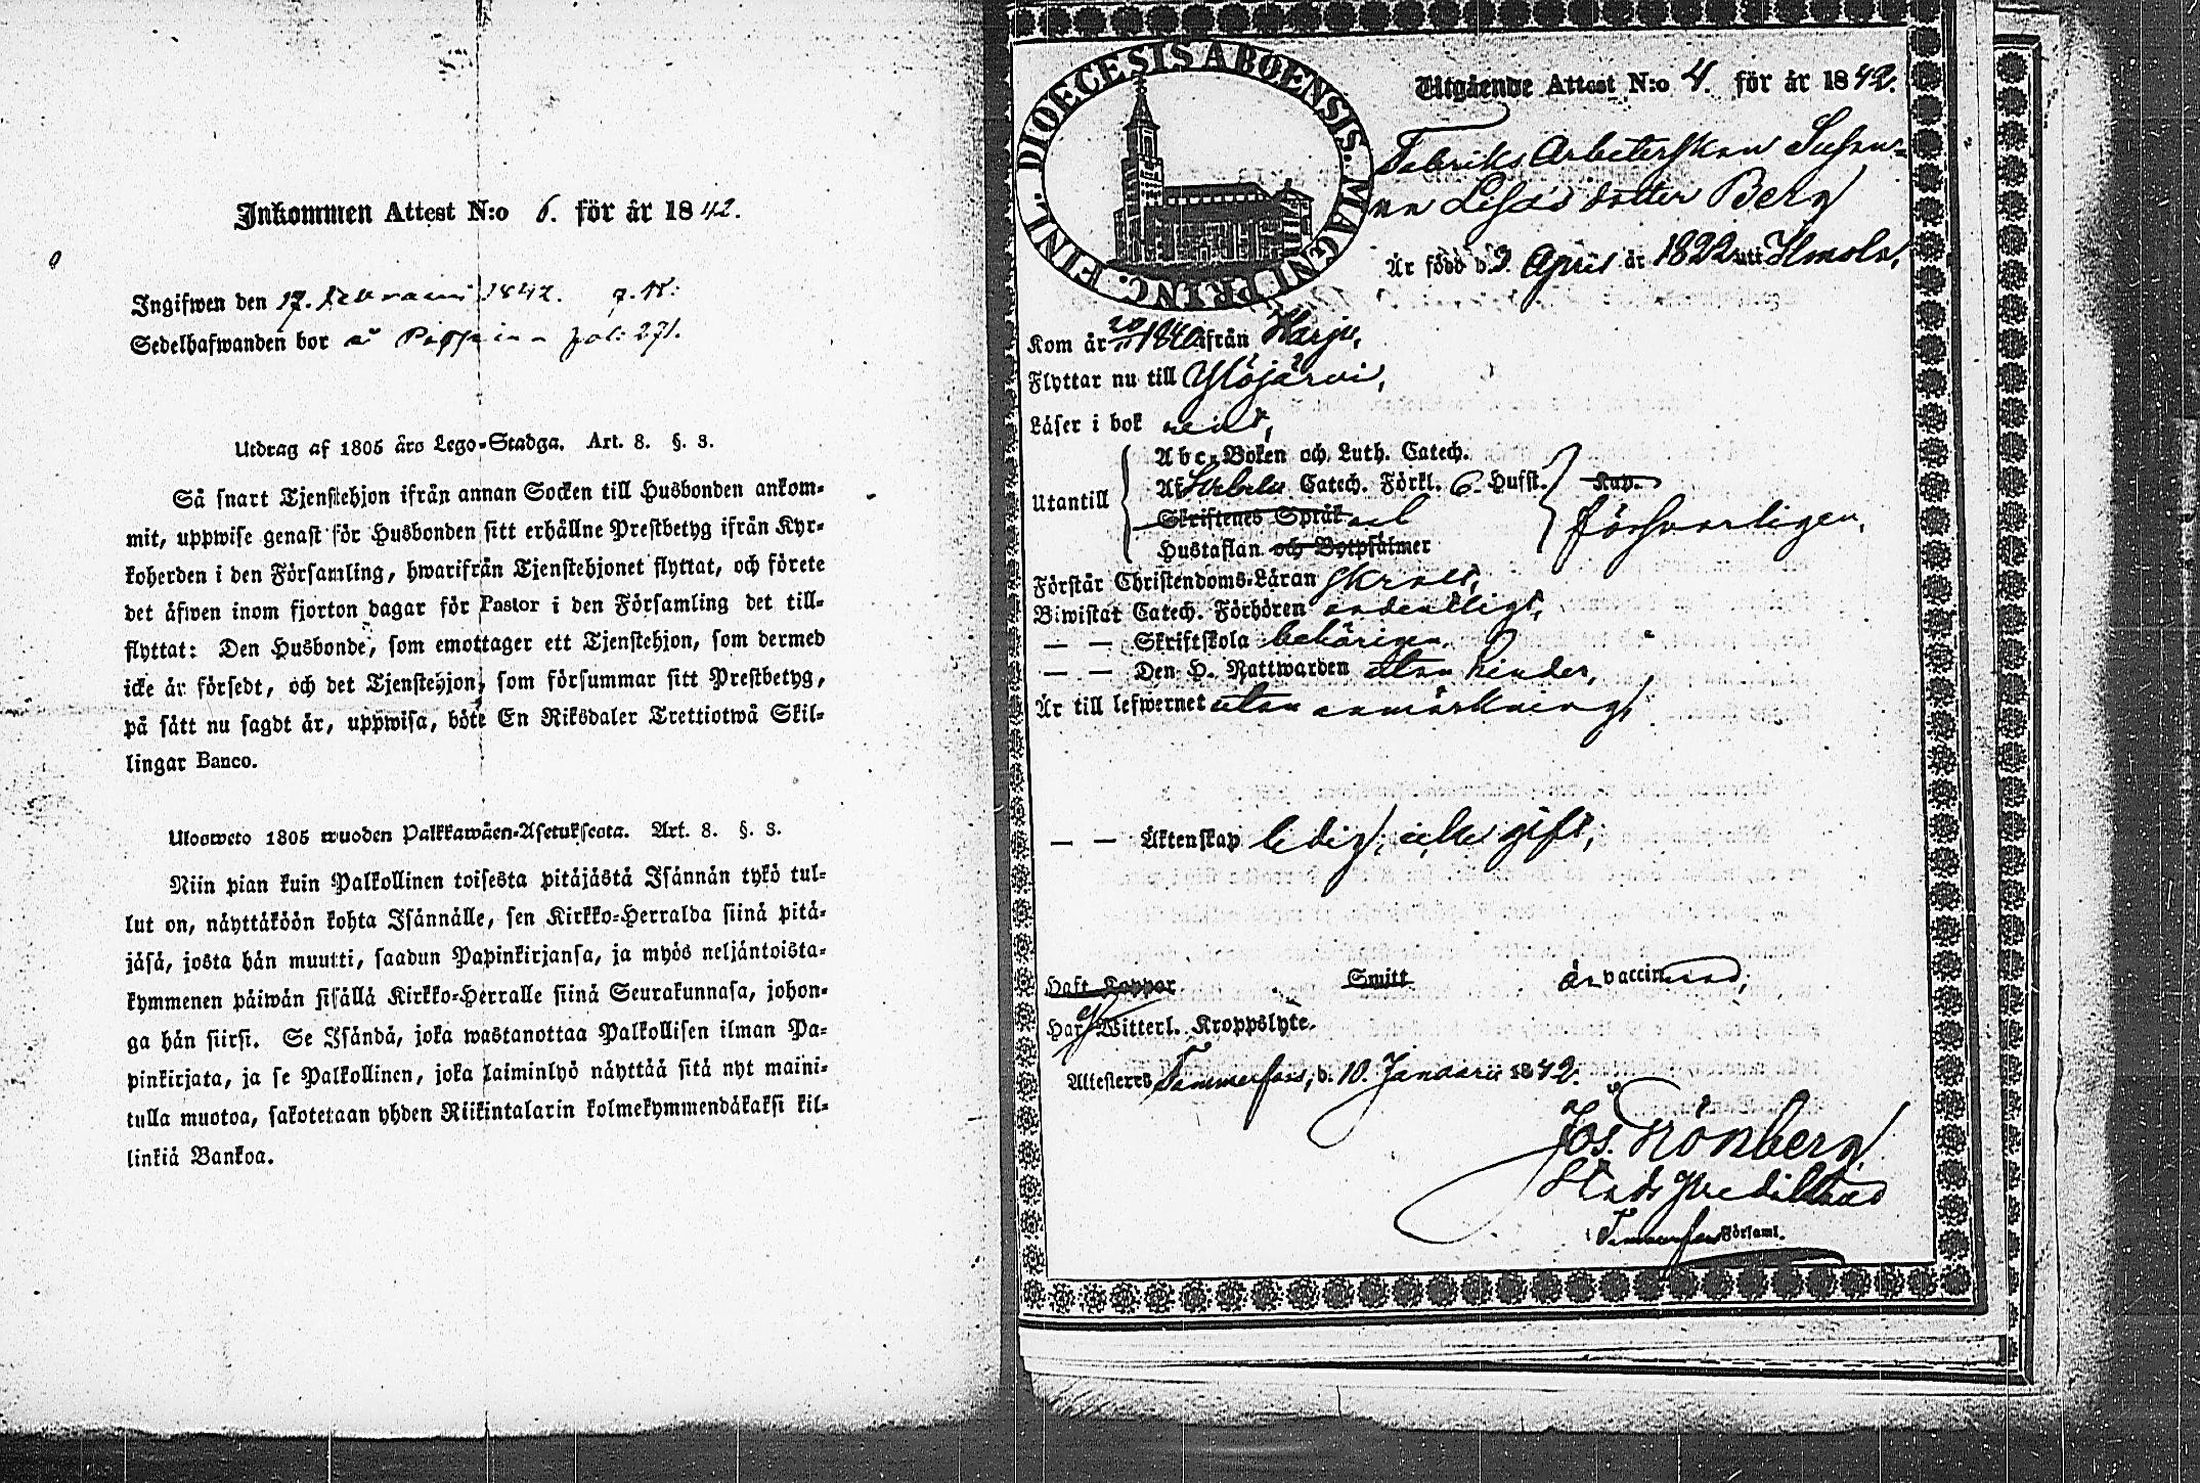 Inkommen Attest N:o 6. för år 1842.
Ingifwen den 17. Februarii 1842. p. 18:
Sedelhafwanden bor å fol: 271.
Utdrag af 1805 års Lego-Stadga. Art. 8. §. 3.
Så snart Tjenstehjon ifrån annan Socken till Husbonden ankom-
mit, uppwise genast för Husbonden sitt erhållne Prestbetyg ifrån Kyr-
koherden i den Församling, hwarifrån Tjenstehjonet flyttat, och förete
det äfwen inom fjorton dagar för Pastor i den Församling det till-
flyttat: Den Husbonde, som emottager ett Tjenstehjon, som dermed
icke är försedt, och det Tjenstehjon, som försummar sitt Prestbetyg,
på sätt nu sagdt är, uppwisa, böte En Riksdaler Trettiotwå Skil-
lingar Banco.
Ulosweto 1805 wuoden Palkkawäen-Asetuksesta. Art. 8. §. 3.
Niin pian kuin Palkollinen toisesta pitäjästä Isännän tykö tul-
lut on, näyttäköön kohta Isännälle, sen Kirkko-Herralda siinä pitä-
jäsä, josta hän muutti, saadun Papinkirjansa, ja myös neljäntoista-
kymmenen päiwän sisällä Kirkko-Herralle siinä Seurakunnasa, johon-
ga hän siirsi. Se Isändä, joka wastanottaa Palkollisen ilman Pa-
pinkirjata, ja se Palkollinen, joka laiminlyö näyttää sitä nyt maini-
tulla muotoa, sakotetaan yhden Riikintalarin kolmekymmendäkaksi kil-
linkiä Bankoa.
FINL. DIOECESIS ABOENSIS. MAGNI PRINC.
Utgående Attest N:o 4. för år 1842.
Fabriks Arbeterskan Susan-
na Lisasdotter Berg
Är född d. 9. April år 1822 uti Ilmola,
Kom år 20/11 1840 ifrån Harju,
Flyttar nu till Ylöjärvi,
Läser i bok rent,
Utantill
Abc-Boken och Luth. Catech.
Af Swebelii Catech. Förkl. 6. Hufst. Kap.
Skriftenes Språk och försvarligen,
Hustaflan och Botpsalmer
Förstår Christendoms-Läran skralt,
Biwistat Catech. Förhören ordentligt,
— — Skriftskola behörigen
— — Den H. Nattwarden utan hinder,
Är till lefwernet utan anmärkning,
— — Äktenskap ledig, icke gift,
Haft Koppor Smitt är vaccinerad,
Har ej Witterl. Kroppslyte.
Attesteres Tammerfors, d. 10. Januarii 1842.
Jos. Grönberg
Stads Predikant
Tammerfors Församl.